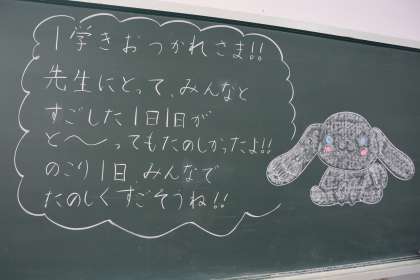 1学きおつかれさま!!
先生にとって、みんなと
すごした1日1日が
と〜ってもたのしかったよ!!
のこり1日、みんなで
たのしくすごそうね!!